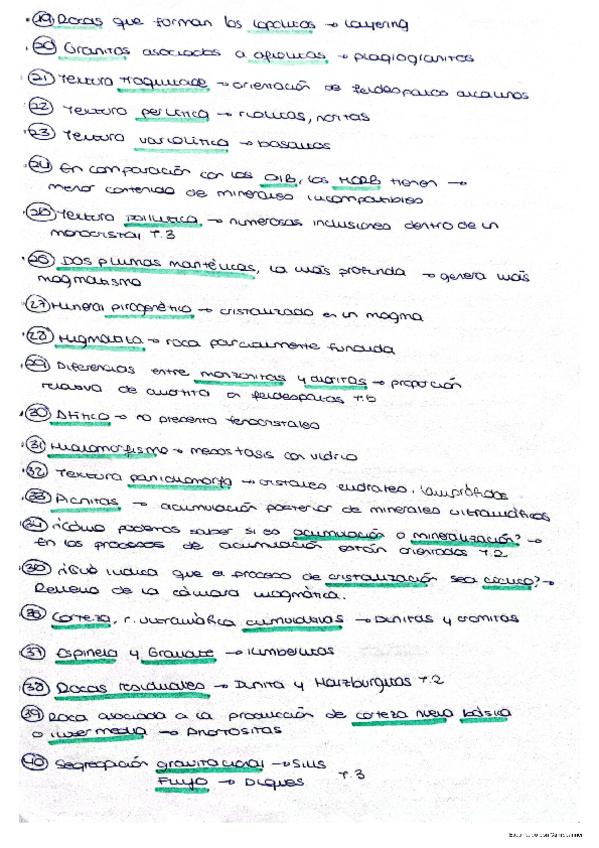 19 Rocas que forman los lopolitos → Layering
20 Granitos asociados a ofiolitas → plagiogranitos
21 Textura traquitoide → orientación de feldespatos alcalinos
22 Textura perlítica → riolitas,
23 Textura variolítica → basaltos
24 En comparación con los OIB, los MORB tienen →
menor contenido de minerales incompatibles
Textura poiquilítica → numerosas inclusiones dentro de un
monocristal T.3
26 Dos plumas mantélicas, la más profunda → genera más
magmatismo
27 Mineral pirogenético → cristalizado en un magma
28 Migmatita → roca parcialmente fundida
29 Diferencias entre monzonitas y dioritas → proporción
relativa de en feldespatos T.5
30 Afírico → no presenta fenocristales
31 Hialomorfismo → mesostasis con vidrio
32 Textura panidiomorfa → cristales euhedrales, lamprófidos
33 Picritas → acumulación posterior de minerales ultramáficos
34 ¿Cómo podemos saber si es acumulación o mineralización? →
En los procesos de acumulación están orientados T.2
35 ¿Qué indica que el proceso de cristalización sea cíclico? →
Relleno de la cámara magmática.
36 Corteza, r. ultramáfica cumulativas → Dunitas y cromitas
37 Espinela y Granate → kimberlitas
38 Rocas residuales → Dunita y Harzburgitas T.2
39 Roca asociada a la producción de corteza nueva básica
o intermedia → Anortositas
40 Segregación gravitacional → Sills
Flujo → Diques T.3